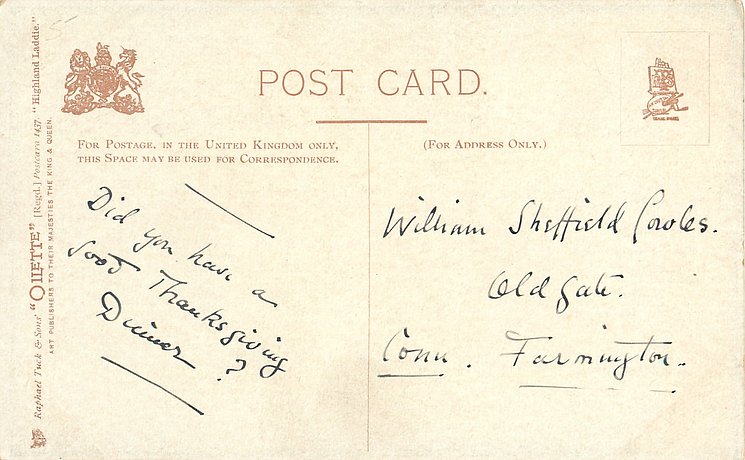 POST CARD.
FOR POSTAGE, IN THE UNITED KINGDOM ONLY,
THIS SPACE MAY BE USED FOR CORRESPONDENCE.
(FOR ADDRESS ONLY.)
Did you have a
good Thanksgiving
Dinner ?
William Sheffield Cowles.
Oldgate.
Conn. Farmington.
Raphael Tuck & Sons' "OILETTE" [Regd.] Postcard 1437. "Highland Laddie."
ART PUBLISHERS TO THEIR MAJESTIES THE KING & QUEEN.